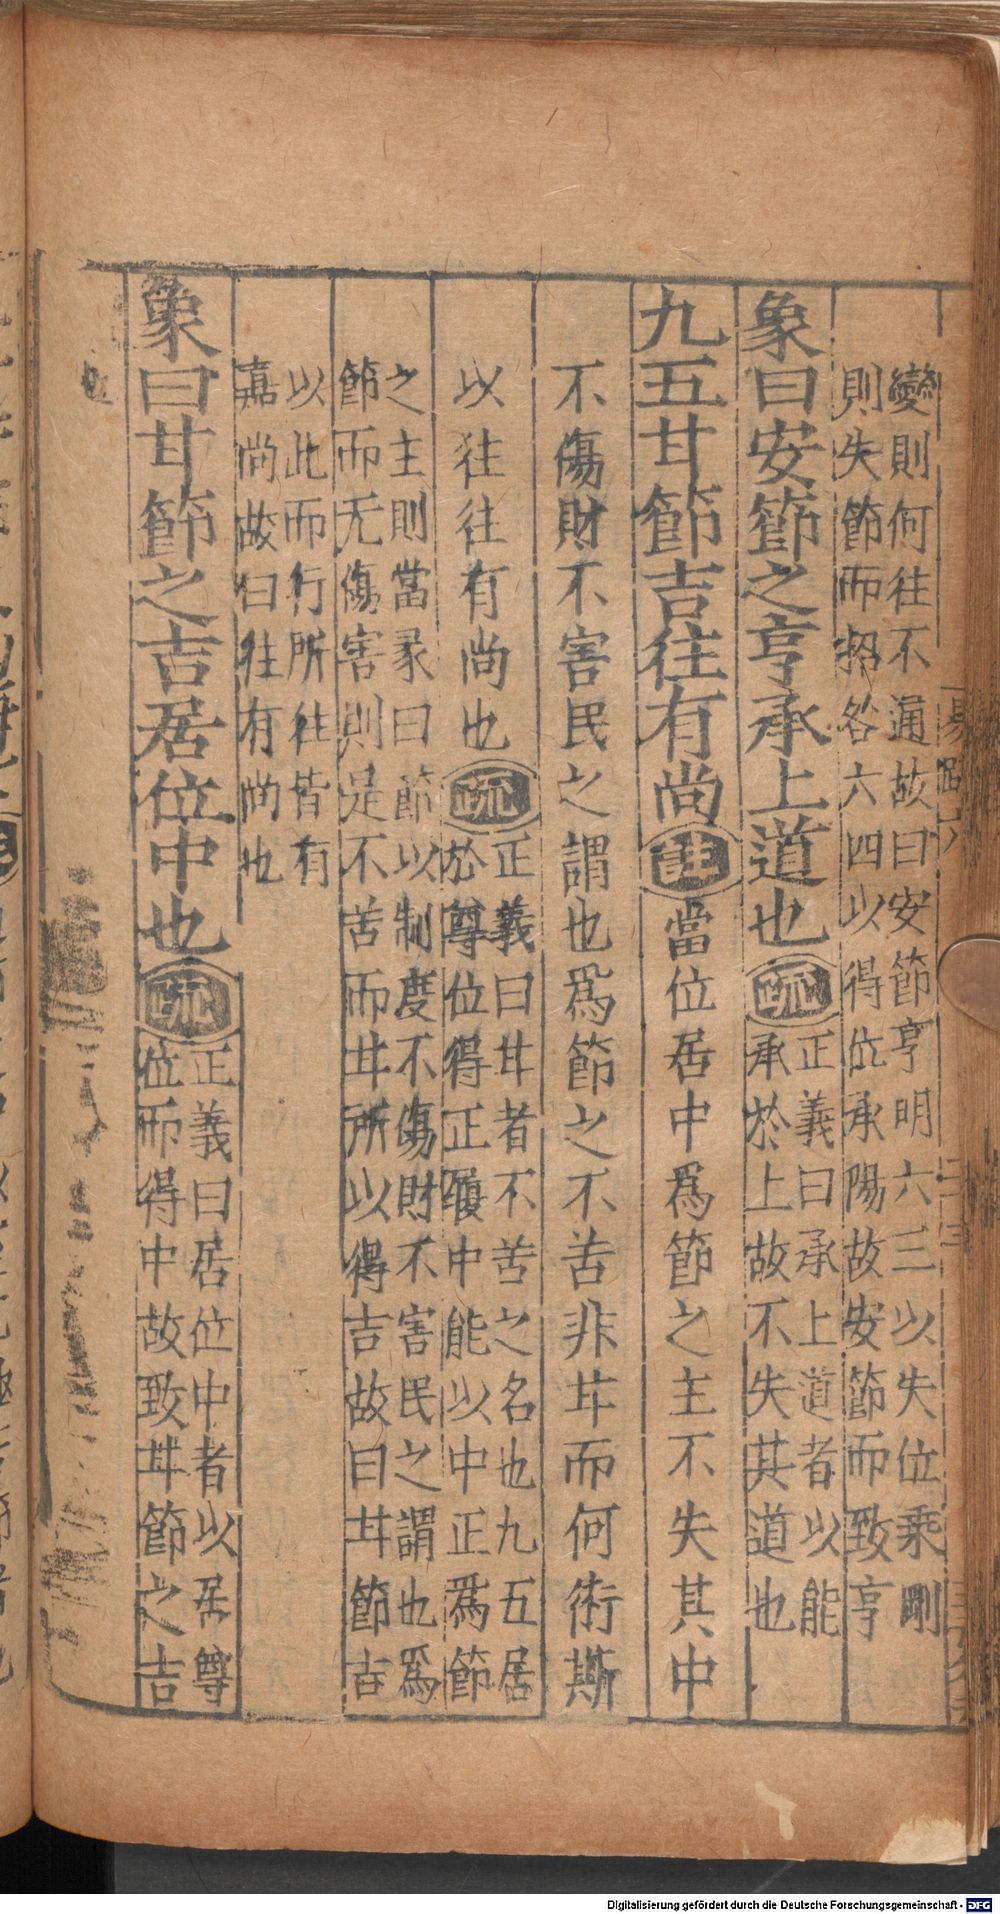 變則何往不通故曰安節亨明六三以失位乘剛
則失節而招咎六四以得位承陽故安節而致亨
象曰安節之亨承上道也疏正義曰承上道者以能
承於上故不失其道也
九五甘節吉往有尚註當位居中爲節之主不失其中
不傷財不害民之謂也爲節之不苦非甘而何術斯
以往往有尚也疏正義曰甘者不苦之名也九五居
於尊位得正履中能以中正爲節
之主則當彖曰節以制度不傷財不害民之謂也爲
節而无傷害則是不苦而甘所以得吉故曰甘節吉
以此而行所往皆有
嘉尚故曰往有尚也
象曰甘節之吉居位中也疏正義曰居位中者以居尊
位而得中故致甘節之吉
Digitalisierung gefördert durch die Deutsche Forschungsgemeinschaft - DFG